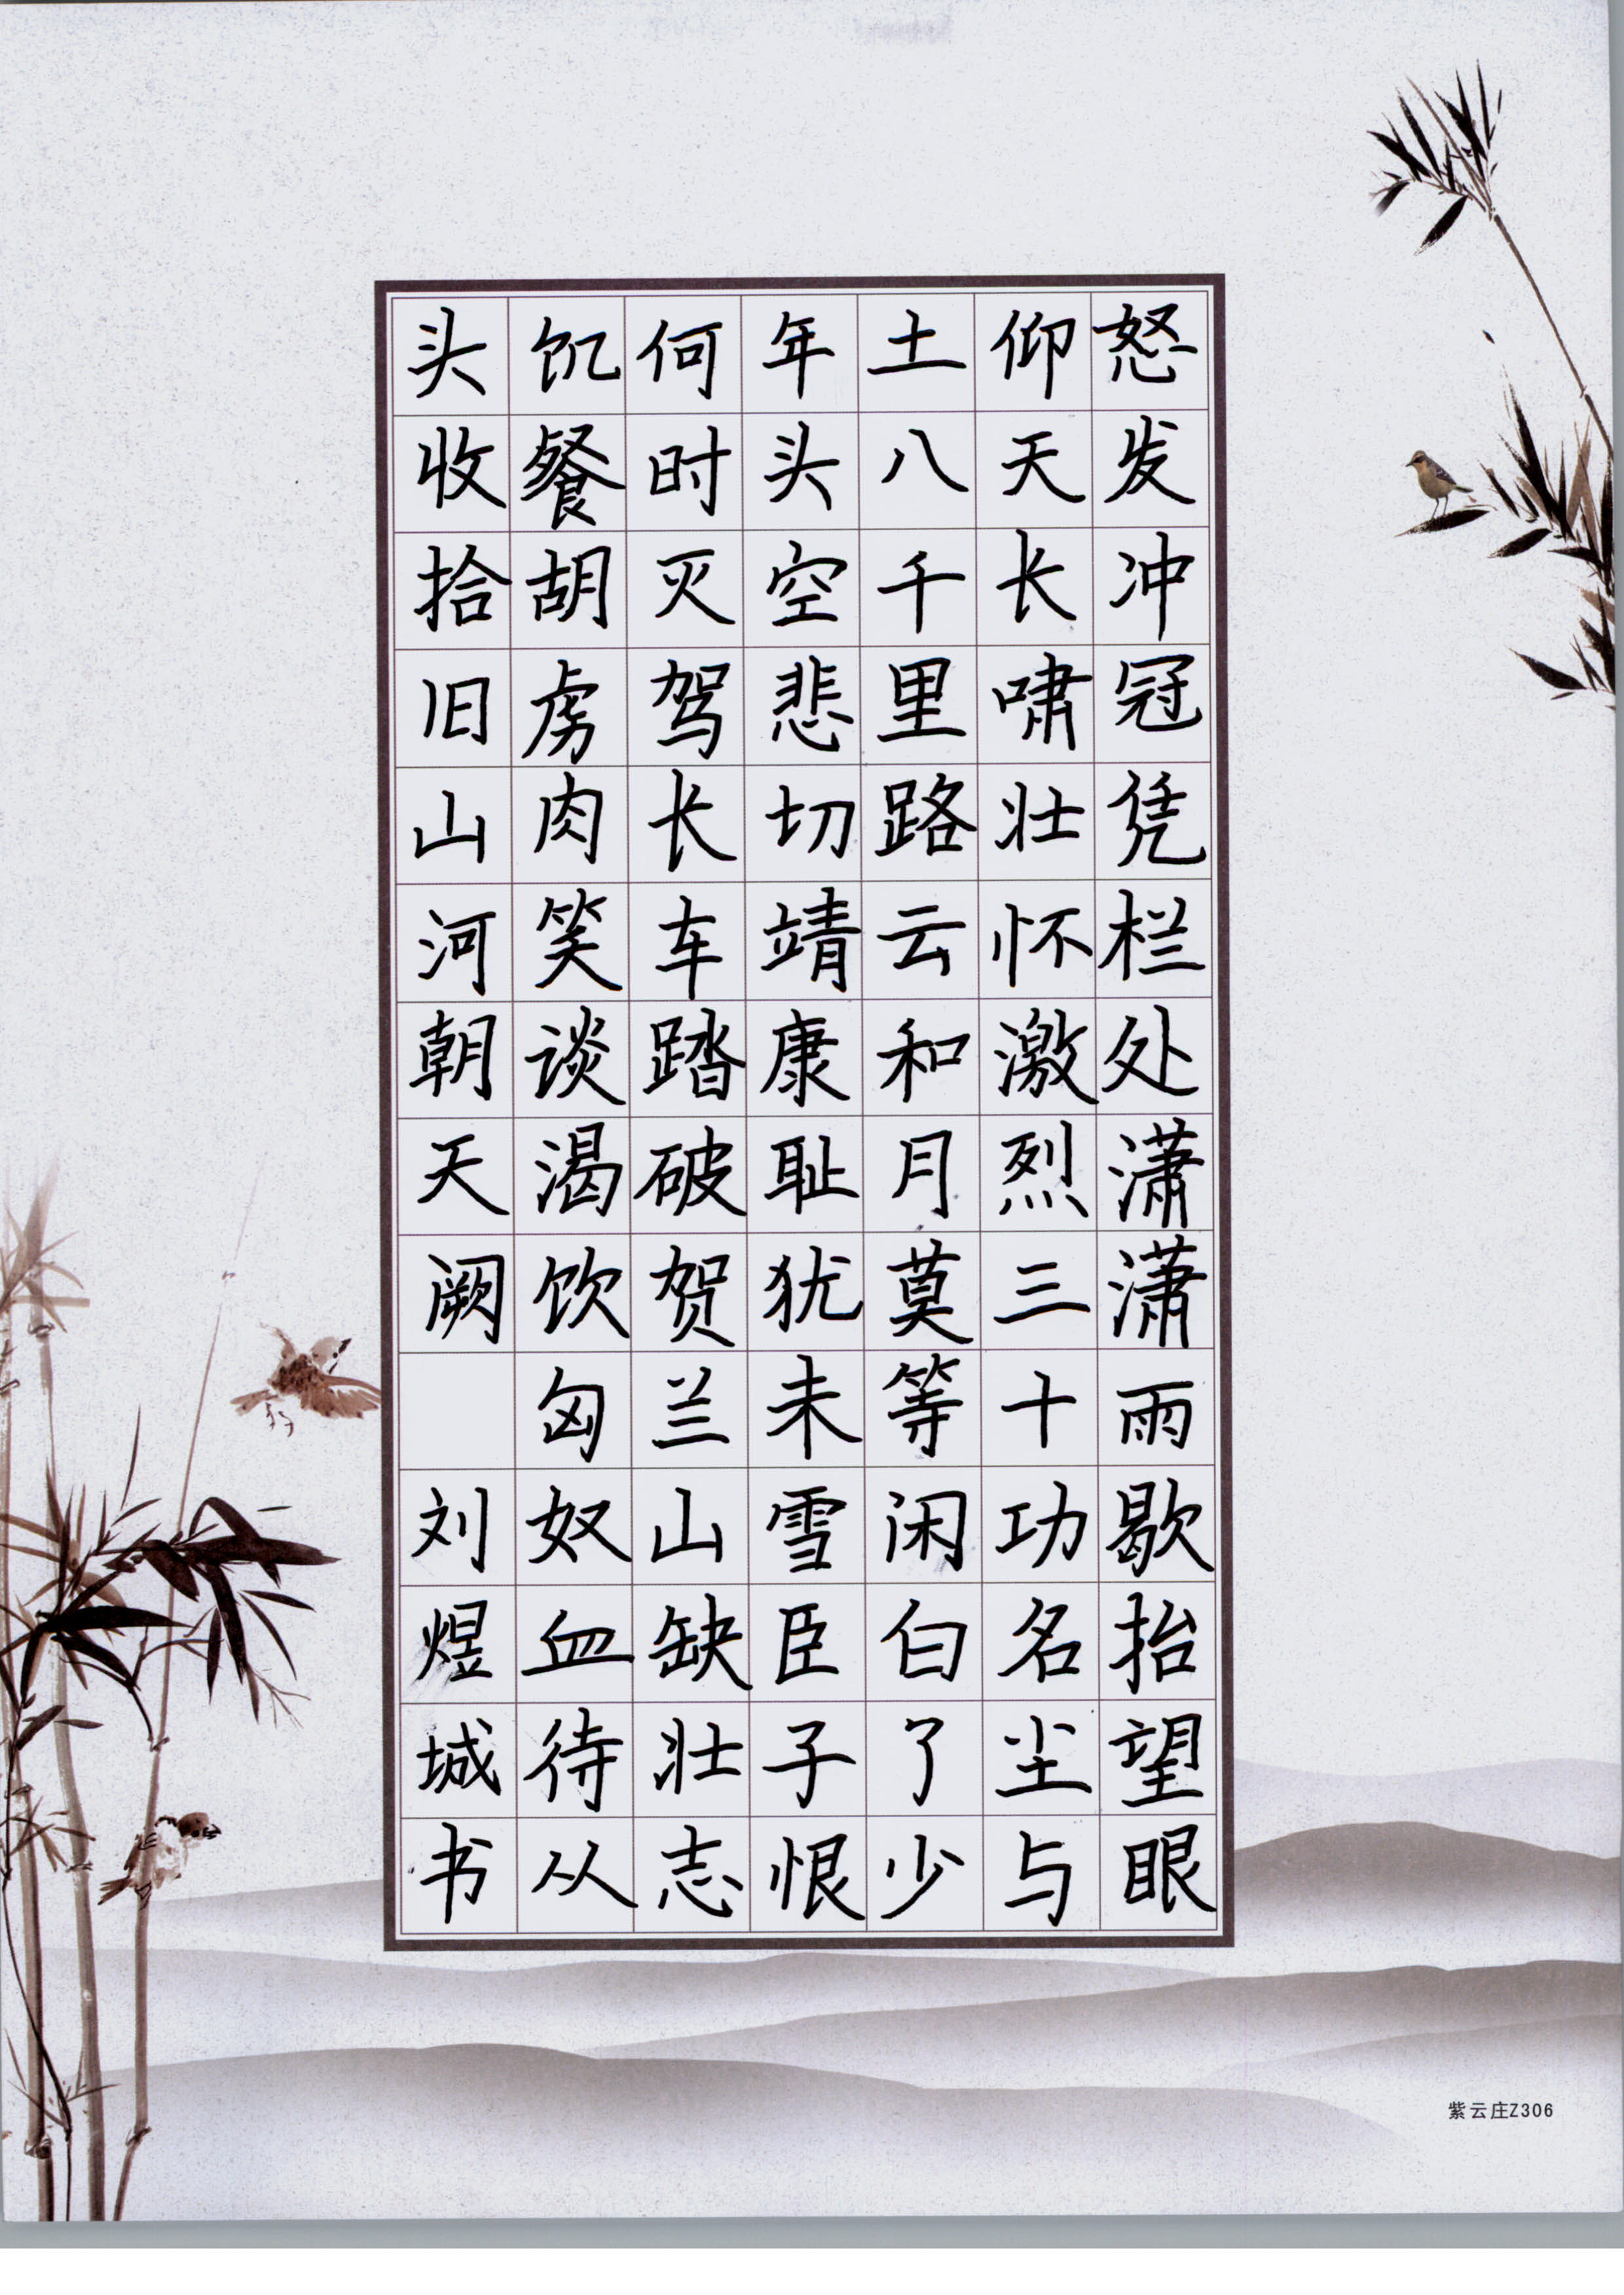 怒发冲冠凭栏处潇潇雨歇抬望眼
仰天长啸壮怀激烈三十功名尘与
土八千里路云和月莫等闲白了少
年头空悲切靖康耻犹未雪臣子恨
何时灭驾长车踏破贺兰山缺壮志
饥餐胡虏肉笑谈渴饮匈奴血待从
头收拾旧山河朝天阙 刘煜城书
紫云庄Z306